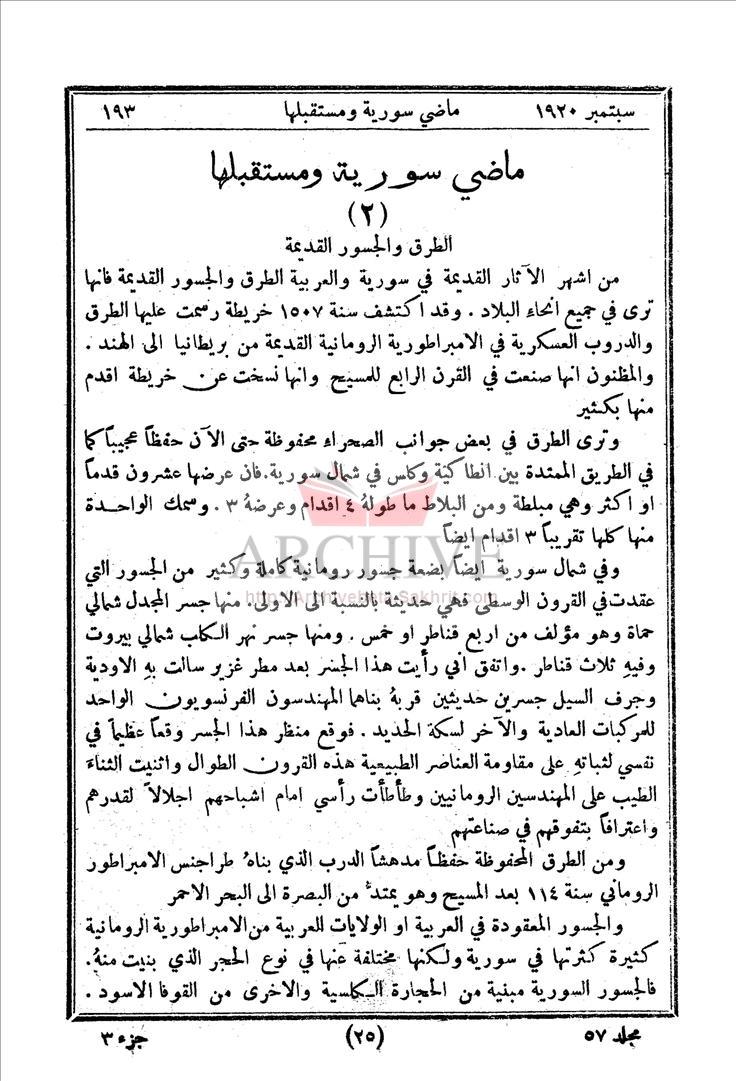 سبتمبر ١٩٢٠ ماضي سورية ومستقبلها ١٩٣
ماضي سورية ومستقبلها
(٢)
الطرق والجسور القديمة
من اشهر الآثار القديمة في سورية والعربية الطرق والجسور القديمة فانها
ترى في جميع انحاء البلاد . وقد اكتشف سنة ١٥٠٧ خريطة رسمت عليها الطرق
والدروب العسكرية في الامبراطورية الرومانية القديمة من بريطانيا الى الهند .
والمظنون انها صنعت في القرن الرابع للمسيح وانها نسخت عن خريطة اقدم
منها بكثير
وترى الطرق في بعض جوانب الصحراء محفوظة حتى الآن حفظاً عجيباً كما
في الطريق الممتدة بين انطاكية وكاس في شمال سورية . فان عرضها عشرون قدماً
او اكثر وهي مبلطة ومن البلاط ما طوله ٤ اقدام وعرضهُ ٣ . وسمك الواحدة
منها كلها تقريباً ٣ اقدام ايضاً
ARCHIVE
وفي شمال سورية ايضاً بضعة جسور رومانية كاملة وكثير من الجسور التي
http://Archivebeta.Sakhrit.com
عقدت في القرون الوسطى فهي حديثة بالنسبة الى الاولى . منها جسر المجدل شمالي
حماة وهو مؤلف من اربع قناطر او خمس . ومنها جسر نهر الكلب شمالي بيروت
وفيهِ ثلاث قناطر . واتفق اني رأيت هذا الجسر بعد مطر غزير سالت بهِ الاودية
وجرف السيل جسرين حديثين قربهُ بناهما المهندسون الفرنسويون الواحد
للمركبات العادية والآخر لسكة الحديد . فوقع منظر هذا الجسر وقعاً عظيماً في
نفسي لثباتهِ على مقاومة العناصر الطبيعية هذه القرون الطوال واثنيت الثناء
الطيب على المهندسين الرومانيين وطأطأت رأسي امام اشباحهم اجلالاً لقدرهم
واعترافاً بتفوقهم في صناعتهم
ومن الطرق المحفوظة حفظاً مدهشاً الدرب الذي بناهُ طراجنس الامبراطور
الروماني سنة ١١٤ بعد المسيح وهو يمتدُّ من البصرة الى البحر الاحمر
والجسور المعقودة في العربية او الولايات للعربية من الامبراطورية الرومانية
كثيرة كثرتها في سورية ولكنها مختلفة عنها في نوع الحجر الذي بنيت منهُ .
فالجسور السورية مبنية من الحجارة الكلسية والاخرى من القوفا الاسود .
مجلد ٥٧ (٢٥) جزء ٣